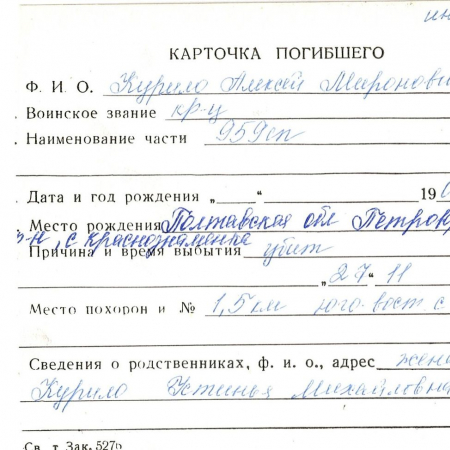 КАРТОЧКА ПОГИБШЕГО
Ф. И. О. Курило Алексей Миронови
Воинское звание кр-ц
Наименование части 959сп
Дата и год рождения „ “ 19
Место рождения Полтавская обл Петров
р-н, с краснознаменка
Причина и время выбытия убит
„27“ 11
Место похорон и № 1,5 км юго-вост. с
Сведения о родственниках, ф. и. о., адрес жена
Курило Устинья Михайловна
Св. т. Зак. 527р